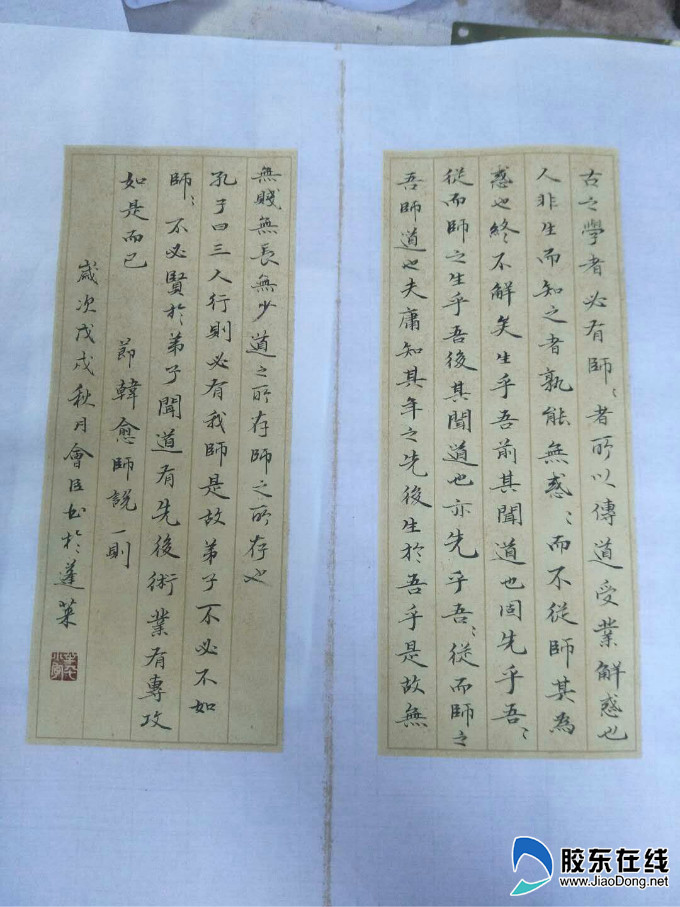 古之學者必有師：者所以傳道受業解惑也
人非生而知之者孰能無惑：而不從師其為
惑也終不解矣生乎吾前其聞道也固先乎吾：
從而師之生乎吾後其聞道也亦先乎吾：從而師之
吾師道也夫庸知其年之先後生於吾乎是故無
無賤無長無少道之所存師之所存也
孔子曰三人行則必有我師是故弟子不必不如
師：不必賢於弟子聞道有先後術業有專攻
如是而已 節韓愈師說一則
歲次戊戌秋月會臣書於蓬萊
胶东在线
www.JiaoDong.net